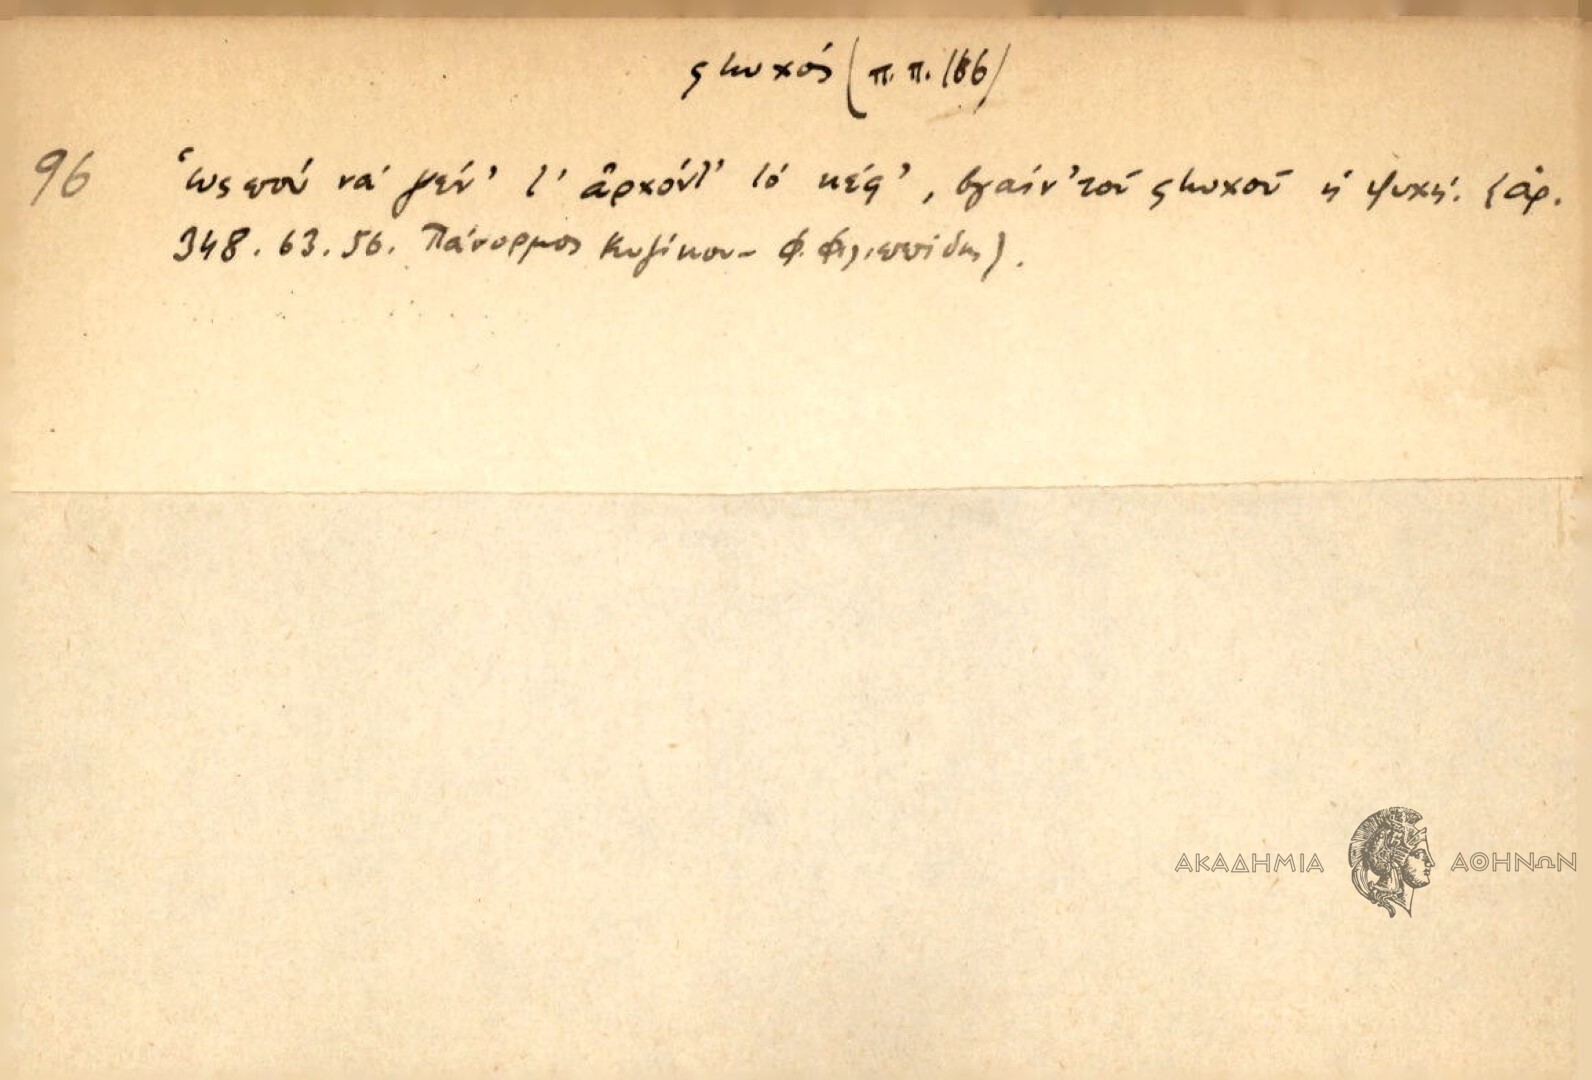 φτωχός (π.π. 166)
96 Ὥςπου νά γεν' τ' ἀρχόντ' τό κέφ', βγαίν' τοῦ φτωχοῦ ἡ ψυχή. (ἀρ.
348. 63. 56. Πάνορμος Κυζίκου - Φ. Φιλιππίδης).
ΑΚΑΔΗΜΙΑ ΑΘΗΝΩΝ